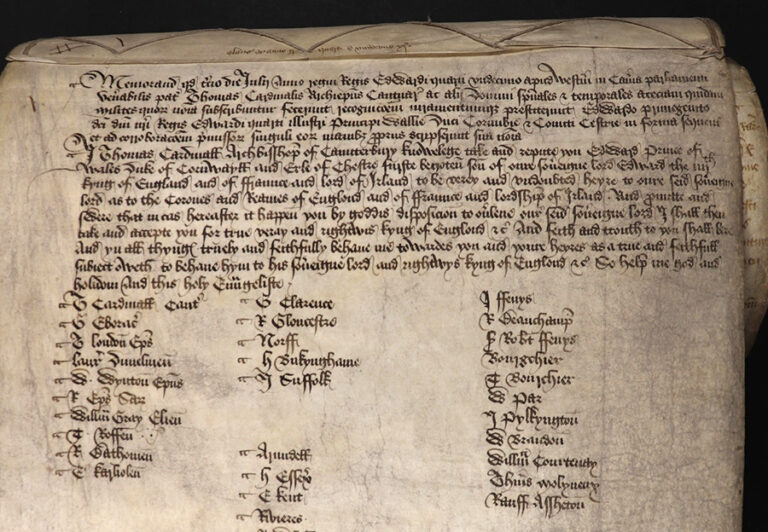 Memorand qd tercio die Julij Anno regni Regis Edwardi quarti undecimo apud Westm in Camera parliamenti
venabilis pater Thomas Cardinalis Archiepus Cantuar ac alij Domini spuales & temporales ac eciam quidam
milites quor noia subscribuntur fecerunt recognicoem iuramentumque prestiterunt Edwardo primogenito
dci dni nri Regis Edwardi quarti illustri Principi Wallie Duci Cornubie & Comiti Cestrie in forma sequenti
et ad corroboracoem pmissor singuli eor manibz pprijs scripserunt sua noia
I Thomas Cardinall Archbisshop of Caunterbury knowelege take and repute you Edward Prince of
Wales Duke of Cornwayll and Erle of Chestre furste begoten son of oure soueigne lord Edward the iiijth
kyng of England and of ffraunce and lord of Irland to be verey and undoubted heyre to oure seid soueigne
lord as to the Corones and Reames of England and of ffraunce and lordship of Irland And pmitte and
swere that in cas hereafter it happen you by goddis disposicion to outleve our seid soueigne lord I shall then
take and accepte you for true veray and rightwis kyng of England &c And feith and trouth to you shall bere
And yn all thyngs truely and feithfully behaue me towardes you and youre heyres as a true and feithfull
subiect oweth to behaue hym to his soueigne lord and rightwys kyng of England &c So help me god and
holidom And this holy Euugeliste
T Cardinall Cantr
G Eborac
T london Eps
laur Dunelmen
W Wynton Epus
R Eps Sar
Willm Gray Elien
T Roffen
R Bathonien
E karliolen
G Clarence
R Gloucestre
Norff
H Bukyngham
J Suffolk
Arundell
H Essex
E kent
Rivieres
J ffenys
R Beauchamp
Robt ffenys
Bourgchier
T Bourchier
W Par
J Pylkyngton
W Brandon
Willm Courtenay
Thms Wolyneux
Rauff Assheton